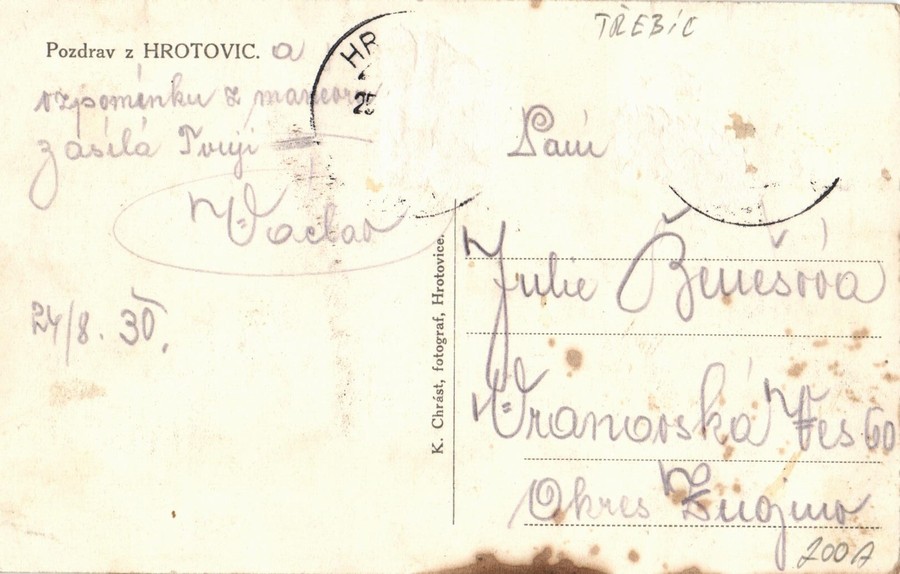 TŘEBÍČ
Pozdrav z HROTOVIC. a
vzpomínku z
zasílá Tvůj
Václav
24/8. 30.
HR
25
K. Chrást, fotograf, Hrotovice.
Paní
Julie Benešová
Vranovská Ves 60
Okres Znojmo